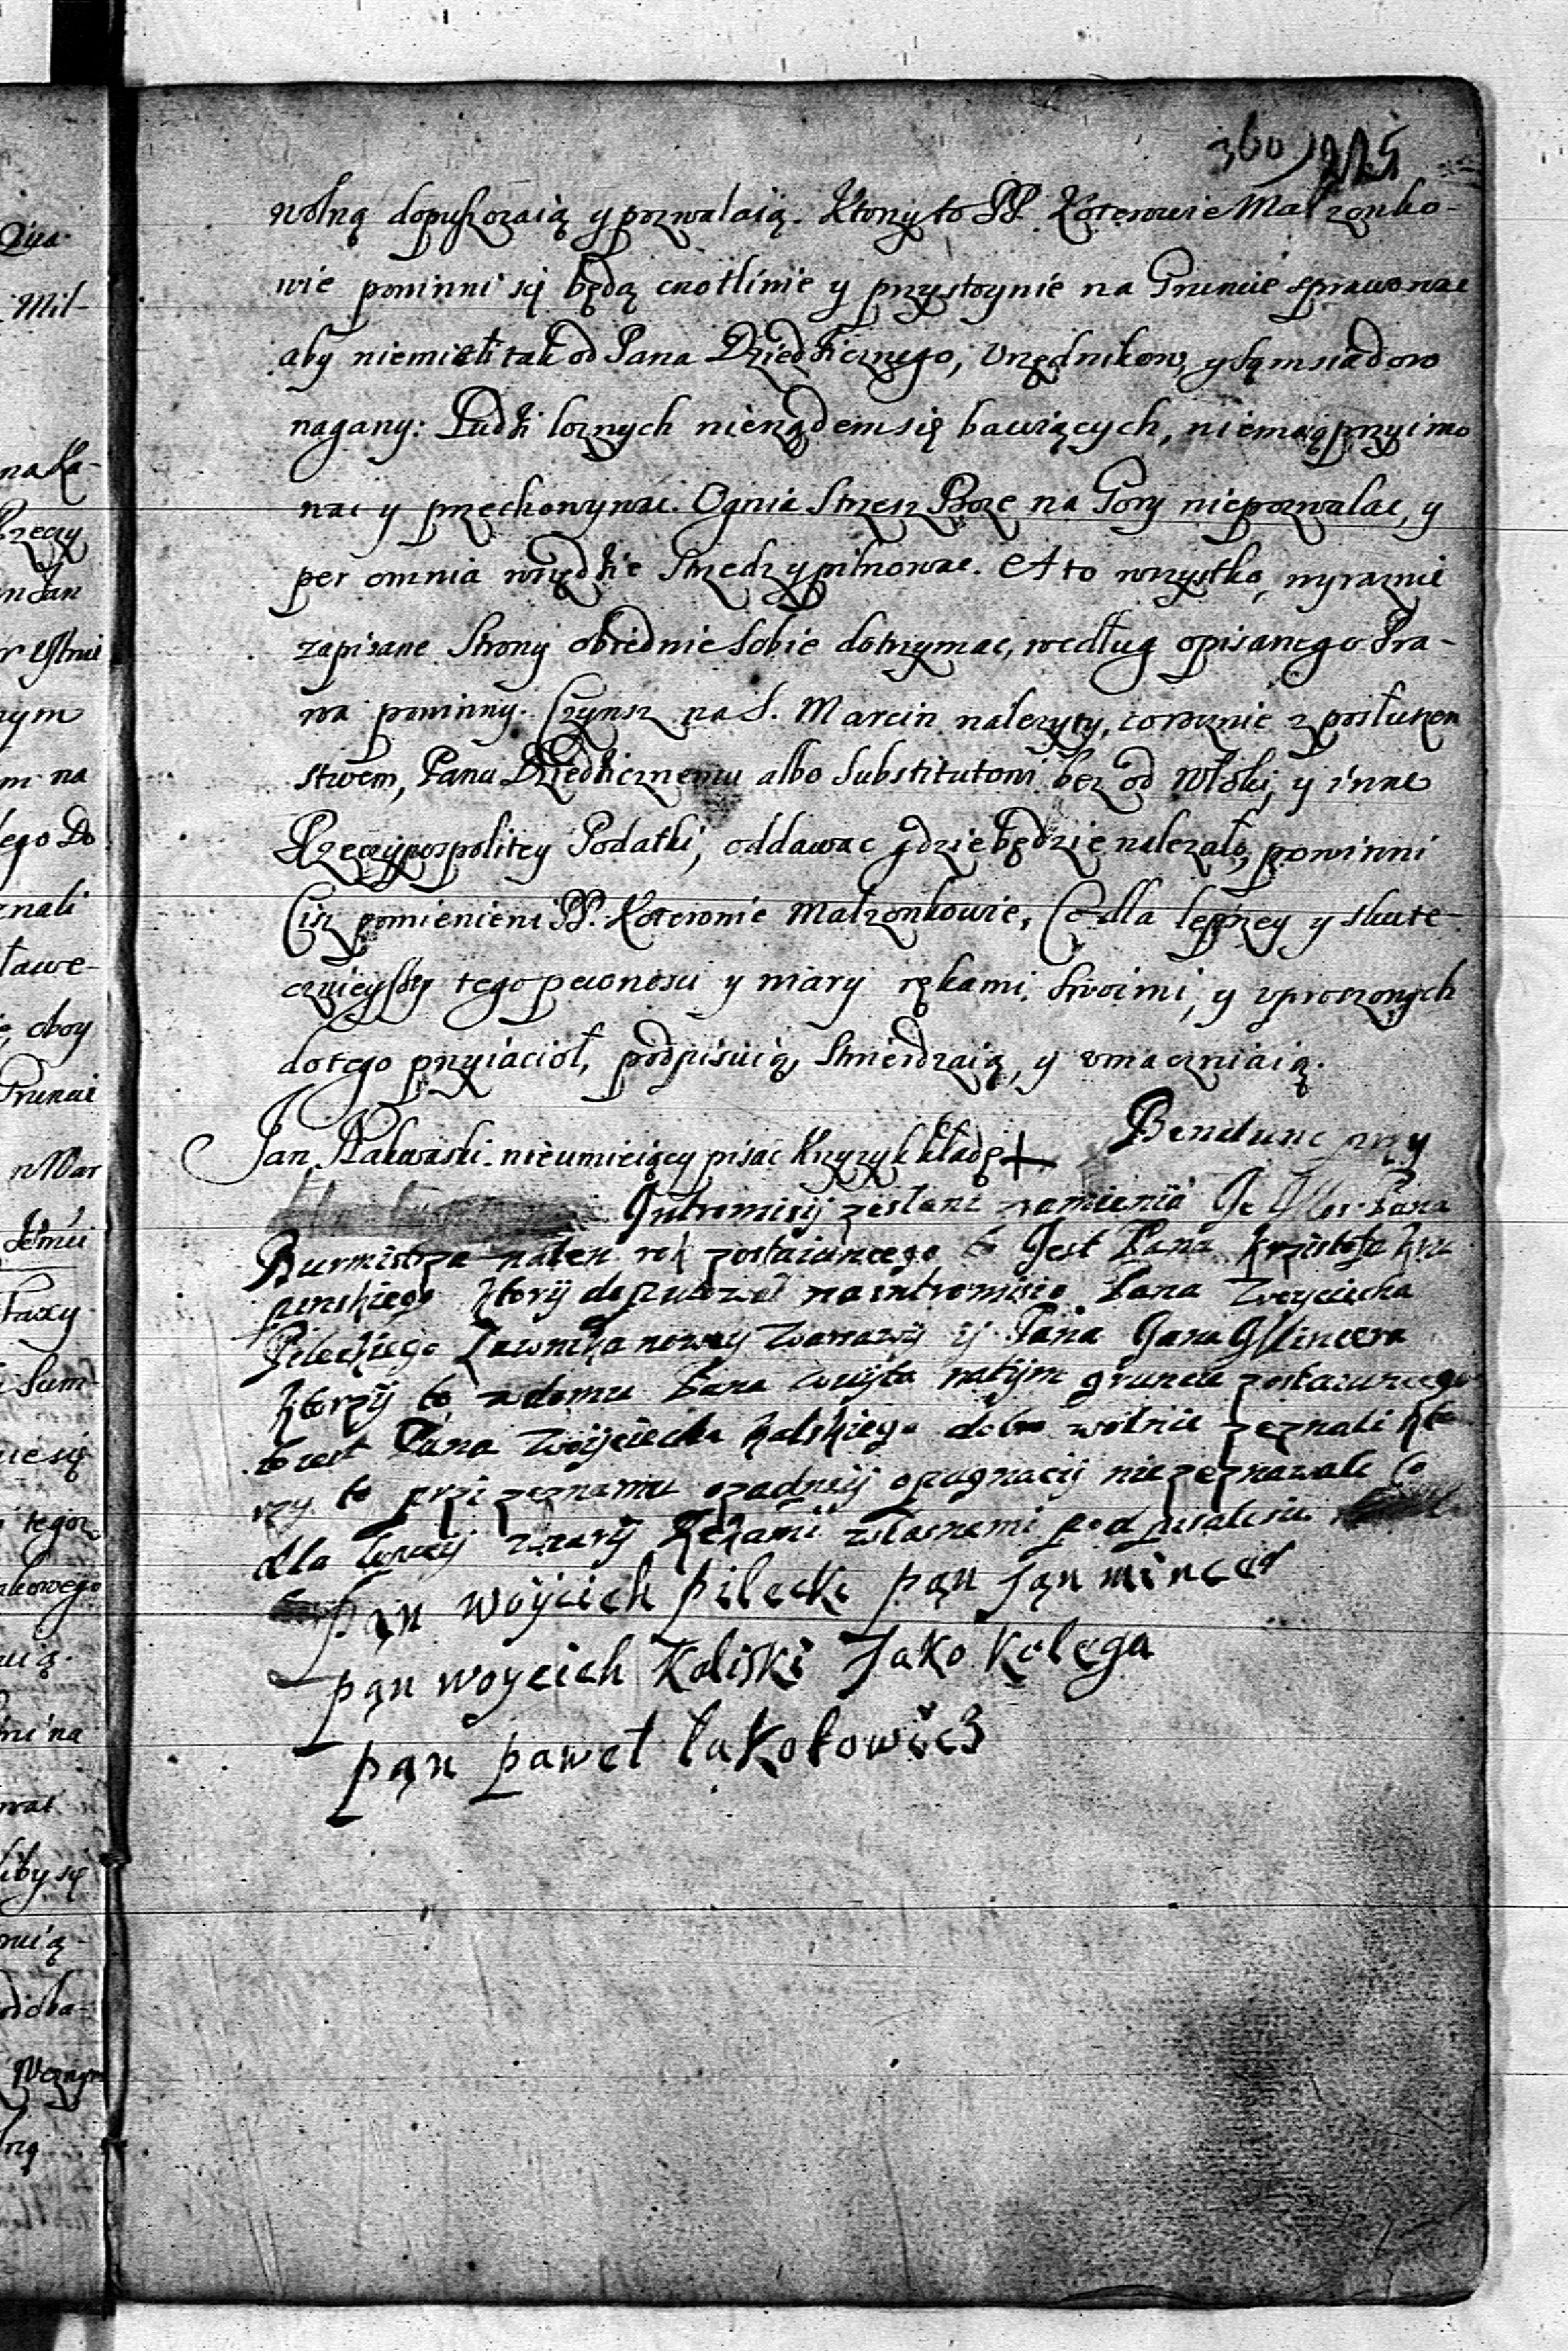 360 225
wolną dopuszczaią y pozwalaią. Ktorzy to PP. Koterowie Małzonko-
wie powinni się będą cnotliwie y przystoynie na Gruncie sprawowac
aby niemieli tak od Pana Dziedzicznego, Vrzędnikow, y sąmsiadow
nagany: Ludzi loznych nierządem się bawiących, niemaią przyimo
wac y przechowywac. Ognia Strzesz Boze na Gory niepozwalac, y
per omnia wszędzie Strzedz y pilnowac. A to wszystko, wyraznie
zapisane Strony obiedwie sobie dotrzymac, według opisanego Pra-
wa powinny. Czynsz na S. Marcin nalezyty, corocznie z posłuszen
stwem, Panu Dziedzicznemu albo Substitutowi bez od Włoki, y inne
Rzeczypospolitey Podatki, oddawac gdzie będzie nalezało, powinni
Cisz pomienieni PP. Koterowie Małzonkowie, Co dla lepszey y skute-
cznieyszy tego pewnosci y wiary rękami swoimi, y vproszonych
do tego przyiacioł, podpisuią, stwierdzaią, y vmacniaią.
Jan Rakowski nieumieiący pisac Krzyzyk kładę + Bendunc przy
Intromisij zeslani zramienia Je Mos Pana
Burmistrza naten rok zostaiuncego to Jest Pana Krzistofa
ktorij deputował na intromisio Pana Woyciecha
Pileckiego Ławnika nowey Warsawy ij Pana Jana Mincera
ktorzij to zdomu Pana woyta natijm gruncie zostaiuncego
to iest Pana Woijciecha Kalskiego dobro wolnie zeznali kto
rzy to przi zeznaniu zadnij opugnacij niezeznawali Co
dla lepszej wiarij Rekami własnemi podpisali sie
pąn woyciech pilecki pąn Jąn mincer
pąn woyciech Kaliski Jako Kolega
pąn paweł łukołowicz